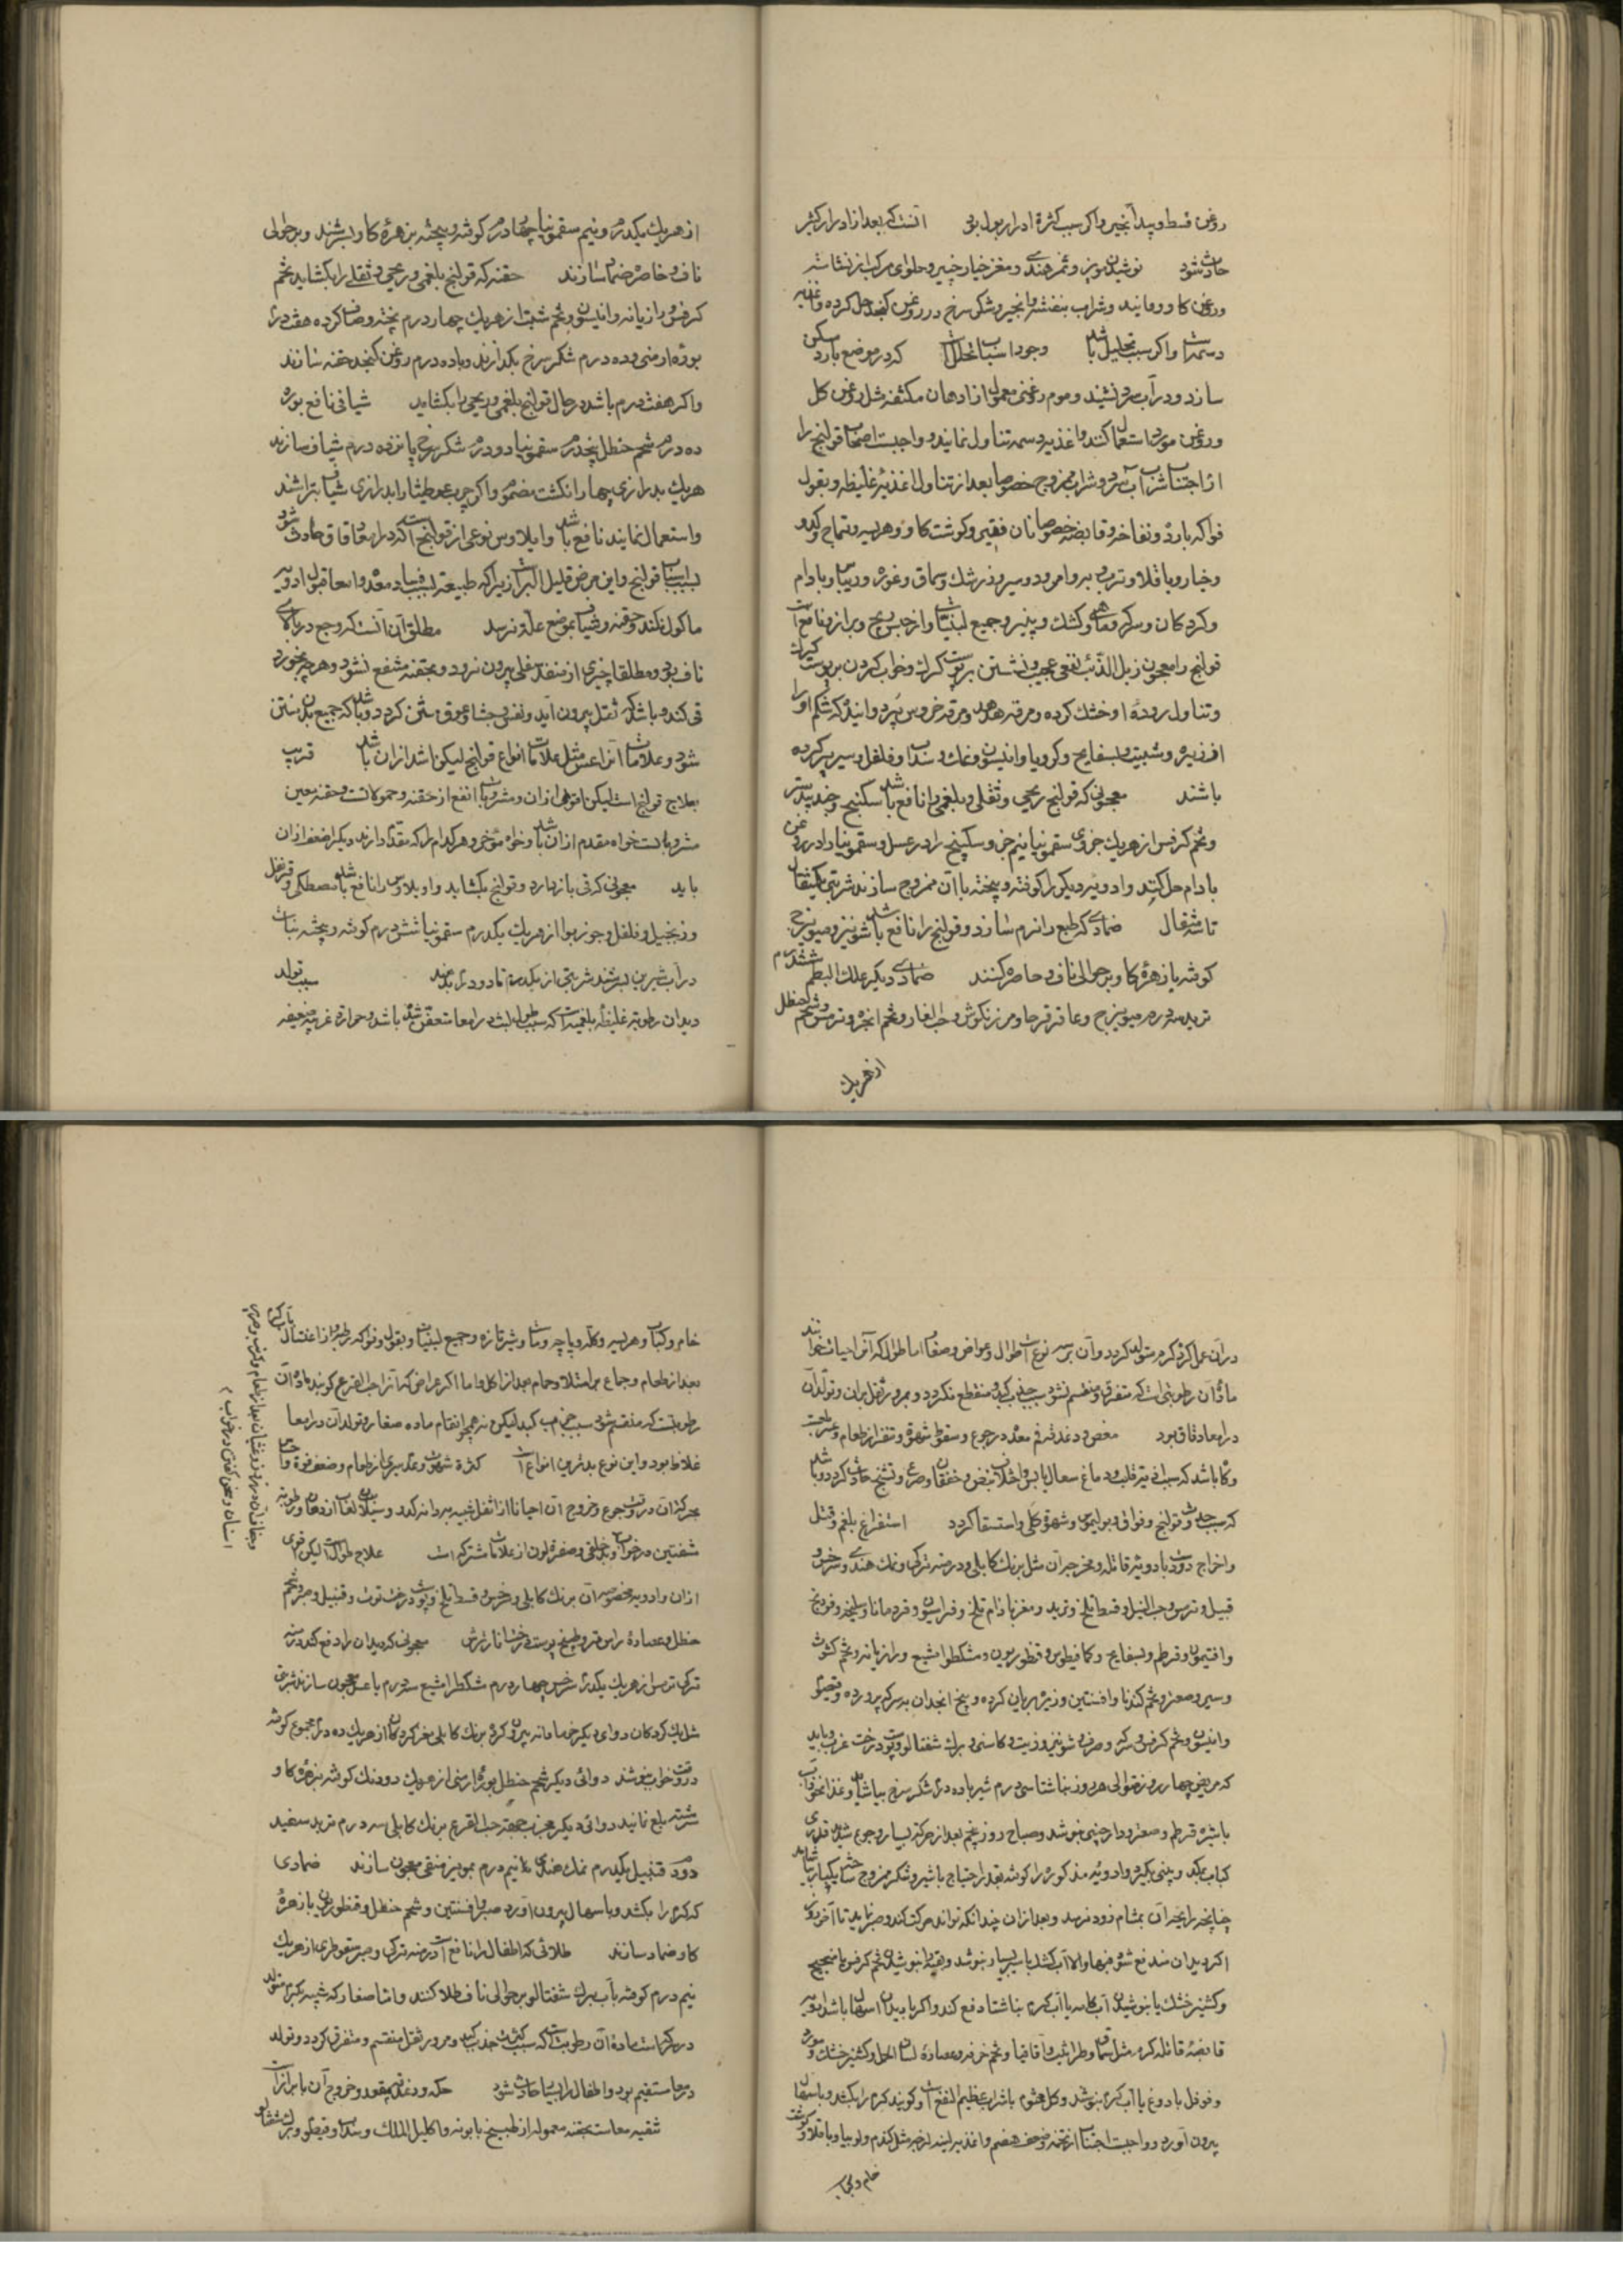 روغن قسط و بیدانجیر و اکر سبب کثرة ادرار بول بود آنست که بعد از ادرار کثیر
حادث شود نوشیدن مویز و تمر هندی و مغز خیار چنبر و حلوای مرکب از نشاسته
و روغن کاو و مانند و شراب بنفشه و انجیر و شکر سرخ در روغن کنجد حل کرده و اغذیه
دسمه است و اکر سبب تحلیل باشد وجود اسباب تحلل است که در موضع بارد مسکن
سازد و در آب سرد نشیند و موم روغنی معمول از ادهان مکثفه مثل روغن کل
و روغن مورد استعمال کنند و اغذیه دسمه تناول نمایند و واجبست اصحاب قولنج را
از اجتناب شرب آب سرد و شراب ممزوج خصوصا بعد از تناول اغذیه غلیظه و بقول
فواکه بارد و نفاخه و قابضه خصوصا نان فطیر و کوشت کاو و هریسه و تتماج و کدو
و خیار و باقلا و ترب و به و امرود و سیب و زرشک و سماق و غوره و ریباس و بادام
و کردکان و سرکه و کشک و پنیر و جمیع لبنیات و از حبس ریح و براز و نافع است
قولنج را معجون زبل الذئب نفعی عجیب و نشستن بر پوست کرک و خواب کردن بر پوست کرک
و تناول رودهٔ او خشک کرده و مرقه هدهد و مرقه خروس پیر دوانیده که شکم او را
از زیره و شبت و بسفایج و کرویا و انیسون و نمک و سداب و فلفل و سیر پر کرده
باشند معجونی که قولنج ریحی و ثفلی و بلغمی را نافع باشد سکبینج و جندبیدستر
و تخم کرفس از هر یک جزوی سقمونیا نیم جزو سکبینج را در عسل و سقمونیا را در روغن
بادام حل کنند و ادویهٔ دیکر را کوفته و بیخته با آن ممزوج سازند شربتی یکمثقال
تا سه مثقال ضمادی که طبع را نرم سازد و قولنج را نافع باشد شونیز و میویزج
کوفته با زهرهٔ کاو بر حوالی ناف و خاصره کنند ضمادی دیکر علک البطم شش درم
تربد سه درم میویزج و عاقرقرحا و مرزنکوش و حب الغار و تخم انجره و ترمس و شحم حنظل
از هر یک
از هر یک یکدرم و نیم سقمونیا چهار درم کوفته و بیخته بزهرهٔ کاو بسرشند و بر حوالی
ناف و خاصره ضماد سازند حقنه که قولنج بلغمی و ریحی و ثفلی را بکشاید تخم
کرفس و رازیانه و انیسون و تخم شبت از هر یک چهار درم پخته و صاف کرده هفت درم
بورهٔ ارمنی و ده درم شکر سرخ بکدازند و با ده درم روغن کنجد حقنه سازند
و اکر هفت درم باشد در حال قولنج بلغمی و ریحی را بکشاید شیافی نافع بوره
ده درم شحم حنظل پنجدرم سقمونیا دو درم شکر سرخ پانزده درم شیاف سازند
هر یک بدرازی چهار انکشت مضموم
و استعمال نمایند نافع باشد و ایلاوس نوعی از قولنج است که در امعاء دقاق حادث شود
بسبب اسباب قولنج و این مرض قلیل البرء است زیرا که طبیعت بسبب فساد معده و امعا قبول ادویه
ماکول نکند و حقنه و شیاف بموضع علت نرسد مطلق آن آنست که وجع در بالای
ناف بود و مطلقا چیزی از منفذ سفلی بیرون نرود و بحقنه منتفع نشود و هر چه بخورد
قی کند و باشد که ثفل بقی بیرون آید و نفس و جشا و عرق منتن کردد و باشد که جمیع بدن منتن
شود و علامات اعراض مثل علامات انواع قولنج لیکن اشد از آن باشد قریب
بعلاج قولنج است لیکن اقوی از آن و مشروبات انفع از حقنه و حمولات است و حقنه معین
مشروبات است خواه مقدم از آن باشد و خواه مؤخر و هر کدام را که مقدم دارند دیکر اضعف از آن
باید معجونی که قی باز دارد و قولنج بکشاید و ایلاوس را نافع باشد مصطکی و قرنفل
و زنجبیل و فلفل و جوز بوا از هر یک یکدرم سقمونیا شش درم کوفته و بیخته نبات
در آب شیرین بسرشند شربتی از یکدرم تا دو درم بدهند سبب تولد
دیدان رطوبة غلیظهٔ بلغمیه است که بسبب طول لبث در امعا متعفن شده باشد و حرارة غریبه ضعیفه
در آن عمل کرده کرم متولد کردد و آن بر سه نوع است طوال و عراض و صغار اما طوال که آنرا حیات خوانند
مادهٔ آن رطوبتی است که متفرق و منقسم نشود بسبب جذب کبد و منقطع نکردد و بمرور ثفل بر آن و تولد آن
در امعاء دقاق بود مغص و دغدغه فم معده در جوع و سقوط شهوة و تنفر از طعام
و کاه باشد که بسبب اذیت قلب و دماغ سعال یابس و اختلاف نبض و خفقان و صرع و تشنج حادث کردد و باشد
که سبب حدوث قولنج و فواق و بولیموس و شهوة کلبی و استسقا کردد استفراغ بلغم و قتل
و اخراج دود است بادویهٔ قاتله و مخرجهٔ آن مثل برنک کابلی و درمنه ترکی و نمک هندی و سرخس و
قنبیل و ترمس و حب النیل و قسط تلخ و تربد و مغز بادام تلخ و فراسیون و قردمانا و سلیخه و فودنج
و افتیمون و قرطم و بسفایج و کمافیطوس و قنطوریون و مشکطرامشیع و رازیانه و تخم کشوث
و سیر و صعتر و تخم کندنا و افسنتین و زیرهٔ بریان کرده و بیخ انجدان بسرکه پرورده و قیصوم
و انیسون و تخم کرفس و سرکه و حرف و شونیز و زیت و کاسنی و برک شفتالو و پوست درخت غرب و باید
که مریض چهار روز متوالی هر روز بناشتا سی درم شیر با ده درم شکر سرخ بیاشامد و غذا نخوداب
با شیرهٔ قرطم و صعتر و دارچینی بنوشد و صباح روز پنجم بعد از حرکة بسیار و جوع شدید قدری
کباب بمکد و بینی بکیرد و ادویهٔ مذکوره را کوفته بقدر احتیاج با شیر و شکر ممزوج ساخته بیکبار بیاشامد
چنانچه رایحهٔ آن بمشام زود نرسد و بعد از آن چندانکه تواند حرکت کند و صبر نماید تا آخر روز
اکر دیدان مندفع شود فبها و الا آب کشک با سیر بسیار بنوشد و بقیه را بنوشیدن تخم کرفس با
و کشنیز خشک یا بنوشیدن آب کامه یا آب کبر بناشتا دفع کند و اکر با دیدان اسهال باشد ادویه
قابضهٔ قاتلهٔ کرم مثل سماق و طراثیث و اقاقیا و تخم خرفه و عصارهٔ لسان الحمل و کشنیز خشک و مورد
و فوفل با دوغ یا آب کبر بنوشد و کل مختوم با شراب عظیم النفع است و کویند کرم را بکشد و باسهال
بیرون آورد و واجبست اجتناب از تخمه و ضعف هضم و اغذیه لزجه مثل کندم و لوبیا و باقلا و کوشت
خام و کباب
خام و کباب و هریسه و کله و پاچه و ماست و شیر تازه و جمیع لبنیات و بقول و فواکه رطبه و از اغتسال بآب کرم
بعد از طعام و جماع بر امتلا و حمام بعد از اکل و اما اکر عراض که آنرا حب القرع کویند ماده آن
رطوبتست که منقسم شود بسبب جذب کبد لیکن نه همچو انقسام ماده صغار و تولد آن در امعا
غلاظ بود و این نوع بدترین انواع است کثرة شهوت و عدم سیری از طعام و ضعف قوة
بحرکة آن در وقت جوع و خروج آن احیانا از ثفل شبیه بدانه کدو و سیلان لعاب از دهان و رطوبة
شفتین در خواب و بدخلقی و صفرة لون از علامات مشترکه است علاج طوال است لیکن اقوی
از آن و ادویه مخصوصه آن برنک کابلی و سرخس و قسط تلخ و پوست درخت توت و قنبیل و صبر و شحم
حنظل و عصارهٔ راسن تر و طبیخ پوست درخت انار ترش معجونی که دیدان را دفع کند درمنه
ترکی ترمس از هر یک یکدرم سرخس چهار درم مشکطرامشیع سه درم با عسل معجون سازند شربتی
مثل یک کردکان دوای دیکر خرما دانه بیرون کرده برنک کابلی مغز کردکان از هر یک ده درم مجموع کوفته
در وقت خواب بنوشند دوائی دیکر شحم حنظل بورهٔ ارمنی از هر یک دو دنک کوفته بزهرهٔ کاو
سرشته بلع نمایند دوائی دیکر مجرب جهة حب القرع برنک کابلی سه درم تربد سفید
دو درم قنبیل یکدرم نمک هندی نیم درم بمویز منقی معجون سازند ضمادی
که کرم را بکشد و باسهال بیرون آورد صبر و افسنتین و شحم حنظل و قنطوریون با زهرهٔ
کاو ضماد سازند طلائی که اطفال را نافع است درمنه ترکی و صبر سقوطری از هر یک
نیم درم کوفته بآب برک شفتالو بر حوالی ناف طلا کنند و اما صغار که شبیه بکرم متولد
در سرکه است ماده آن رطوبت است که بسبب کثرت جذب کبد و مرور ثفل منقسم و متفرق کردد و تولد
در معاء مستقیم بود و اطفال را بسیار حادث شود حکه و دغدغه مقعد و خروج آن با براز است
تنقیه معا است بحقنه معموله از طبیخ بابونه و اکلیل الملک و سداب و قیصوم و برک شفتالو